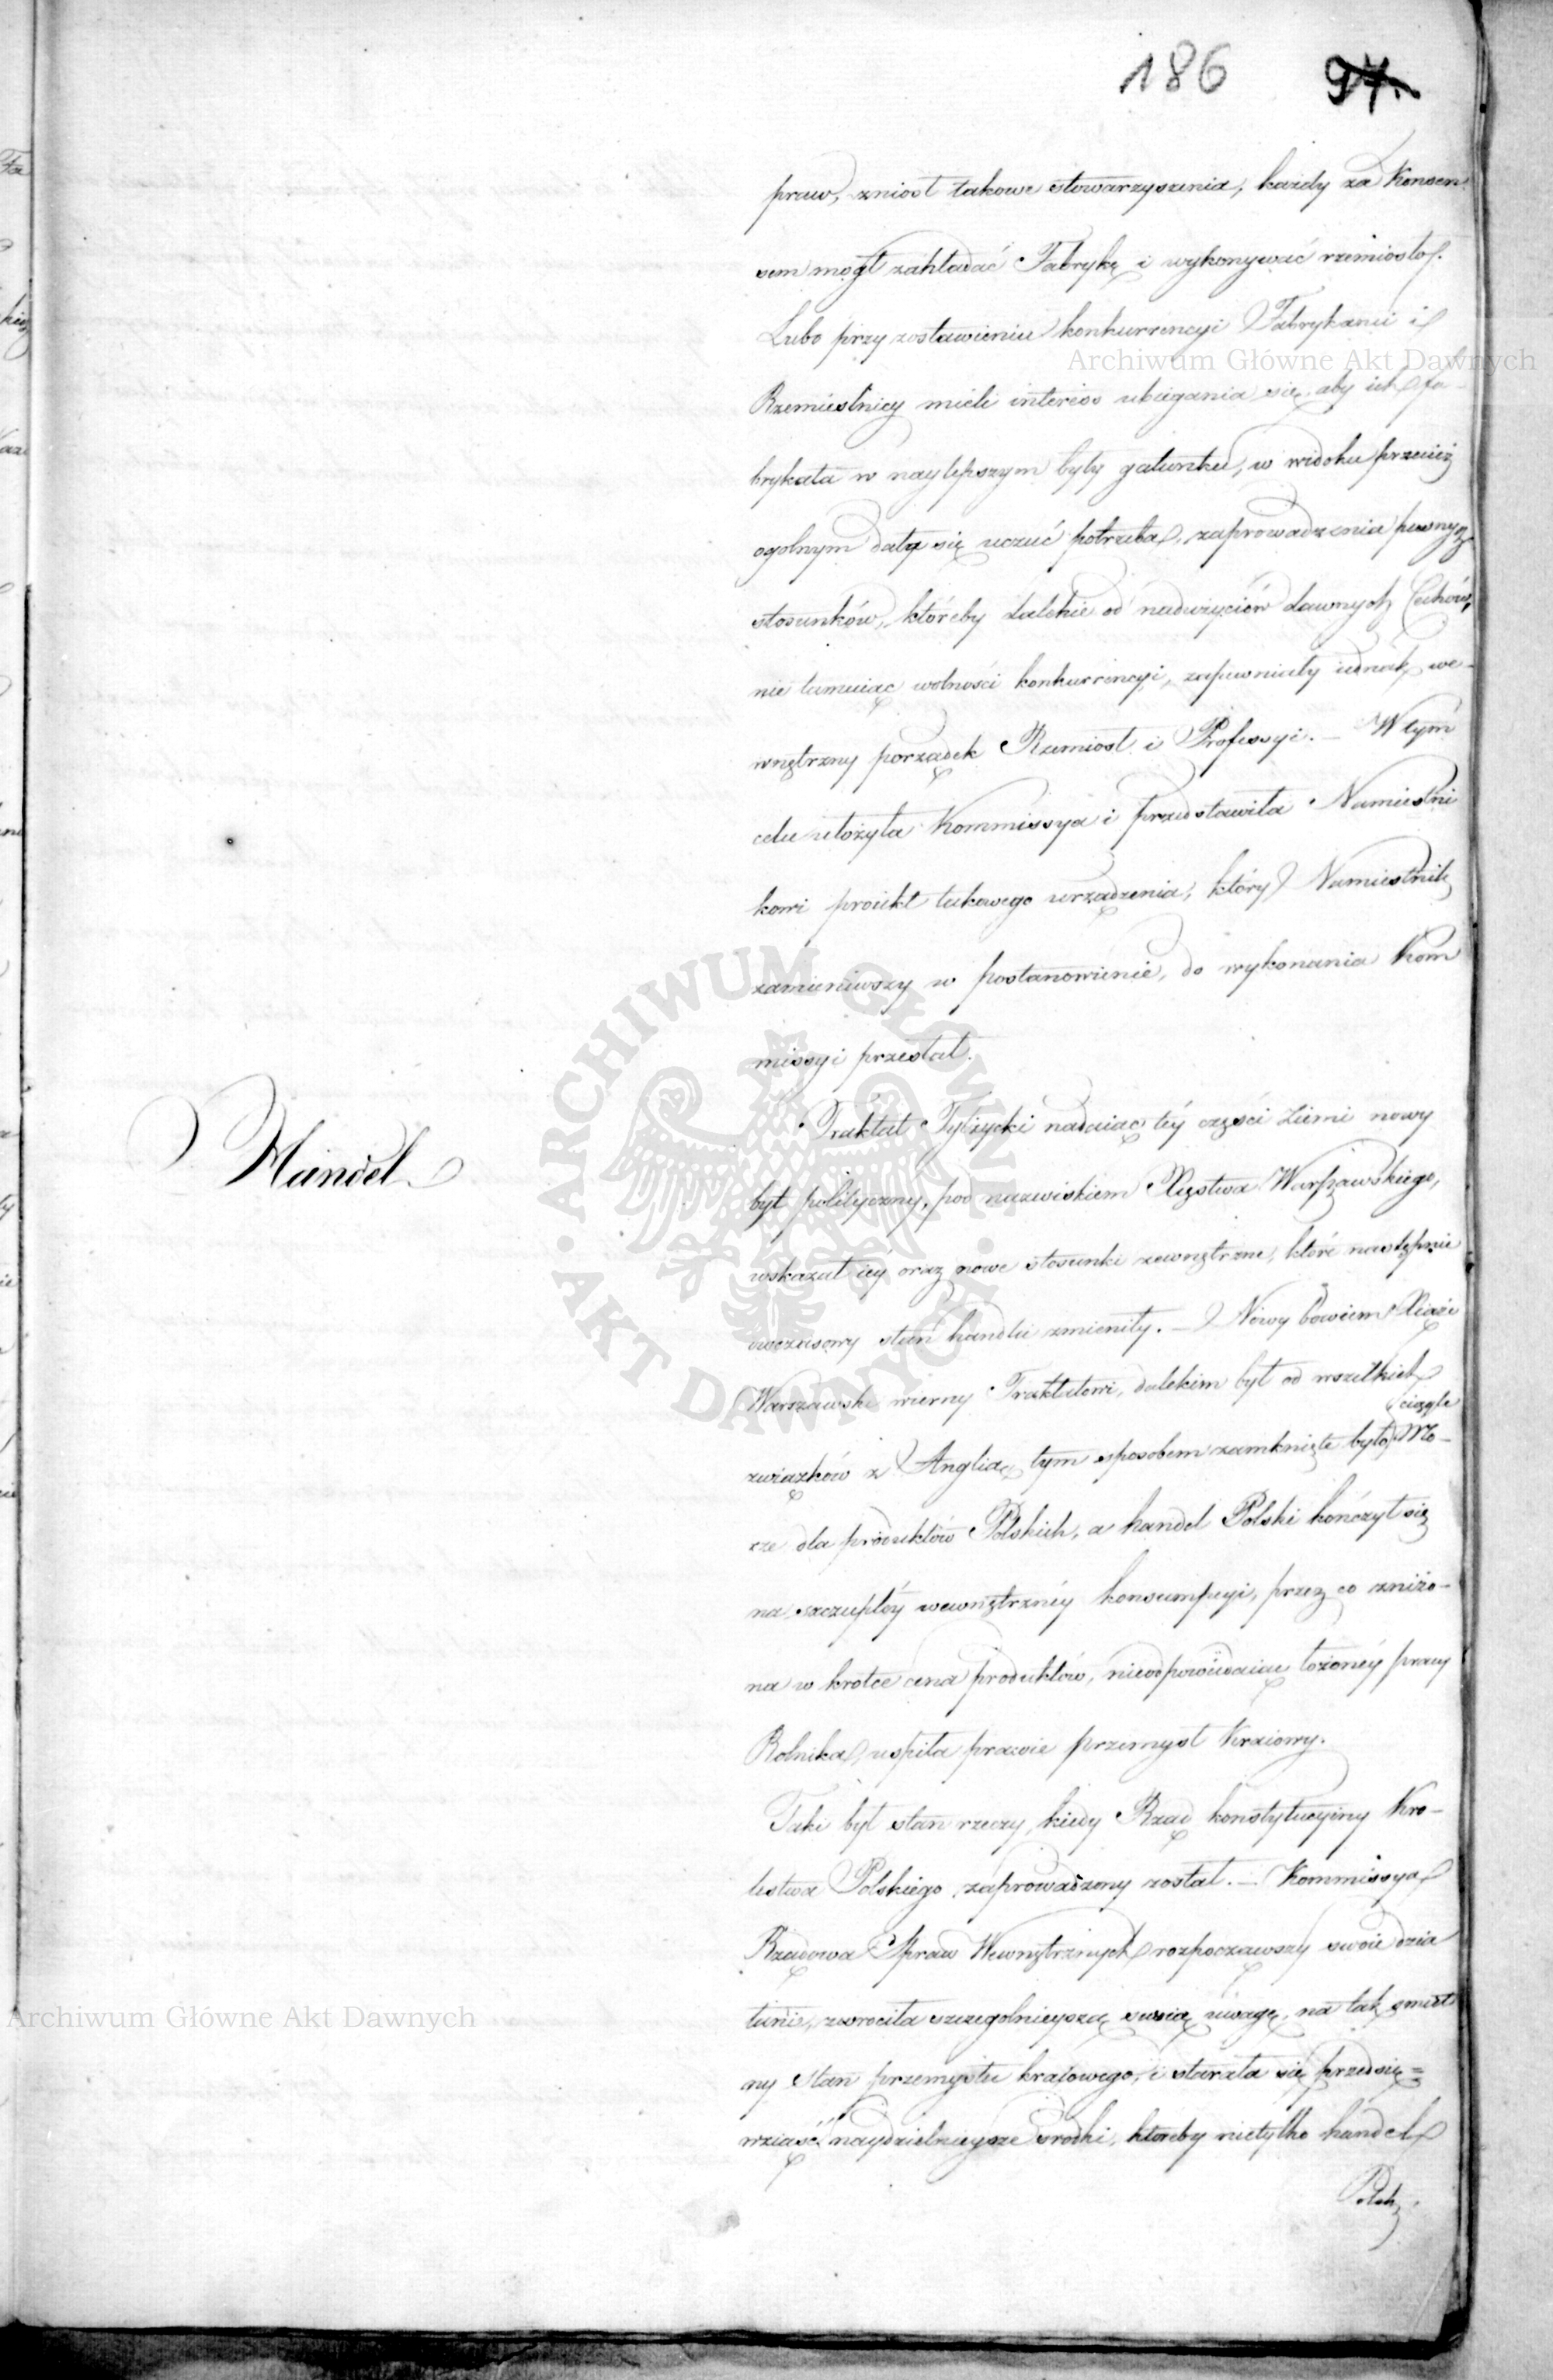 186 97.
praw, zniosł takowe stowarzyszenia, każdy za Konsen
sem mógł zakładać Fabrykę i wykonywać rzemiosło.
Lubo przy zostawieniu konkurrencyi Fabrykanci i
Rzemieslnicy mieli interess ubiegania się, aby ich fa-
brykata w naylepszym były gatunku, w widoku przecież
ogolnym dała się uczuć potrzeba, zaprowadzenia pewnych
stosunków, któreby dalekie od nadużyciów dawnych Cechów,
nie tamuiąc wolności konkurrencyi, zapewniały iednak we-
wnętrzny porządek Rzemiosł i Professyi. — W tym
celu ułożyła Kommissya i przedstawiła Namiestni
kowi proiekt takowego urządzenia, który Namiestnik
zamieniwszy w postanowienie, do wykonania Kom
missyi przesłał.
Handel
Traktat Tylżycki nadaiąc téy części ziemi nowy
byt polityczny, pod nazwiskiem Xięstwa Warszawskiego,
wskazał iéy oraz nowe stosunki zewnętrzne, które następnie
owczasowy stan handlu zmieniły. — Nowy bowiem Xiąże
Warszawski wierny Traktatowi, dalekim był od wszelkich
związków z Anglią, tym sposobem zamknięte było ciągle Mo-
rze dla produktów Polskich, a handel Polski kończył się
na szczupłéy wewnętrznéy konsumpcyi, przez co zniżo-
na w krotce cena produktów, nieodpowiadaiąc łożonéy pracy
Rolnika, uspiła prawie przemysł Kraiowy.
Taki był stan rzeczy, kiedy Rząd konstytucyiny Kro-
lestwa Polskiego zaprowadzony został. — Kommissya
Rządowa Spraw Wewnętrznych rozpocząwszy swoie dzia
łanie, zwrociła szczegolnieyszą swoią uwagę, na tak smut
ny stan przemysłu kraiowego, i starała się przedsię=
wziąść naydzielnieysze srodki, któreby nietylko handel
Polsk
Archiwum Główne Akt Dawnych
Archiwum Główne Akt Dawnych
ARCHIWUM GŁÓWNE · AKT DAWNYCH ·